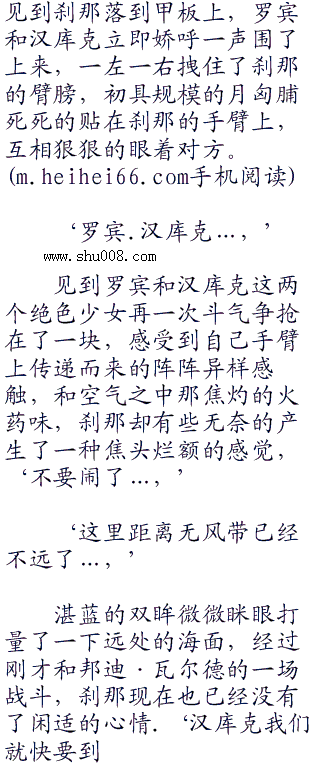 见到刹那落到甲板上，罗宾
和汉库克立即娇呼一声围了
上来，一左一右拽住了刹那
的臂膀，初具规模的月匈脯
死死的贴在刹那的手臂上，
互相狠狠的眼着对方。
(m.heihei66.com手机阅读)
‘罗宾.汉库克...，’
www.shu008.com
见到罗宾和汉库克这两
个绝色少女再一次斗气争抢
在了一块，感受到自己手臂
上传递而来的阵阵异样感
触，和空气之中那焦灼的火
药味，刹那却有些无奈的产
生了一种焦头烂额的感觉，
‘不要闹了...，’
‘这里距离无风带已经
不远了...，’
湛蓝的双眸微微眯眼打
量了一下远处的海面，经过
刚才和邦迪·瓦尔德的一场
战斗，刹那现在也已经没有
了闲适的心情.‘汉库克我们
就快要到